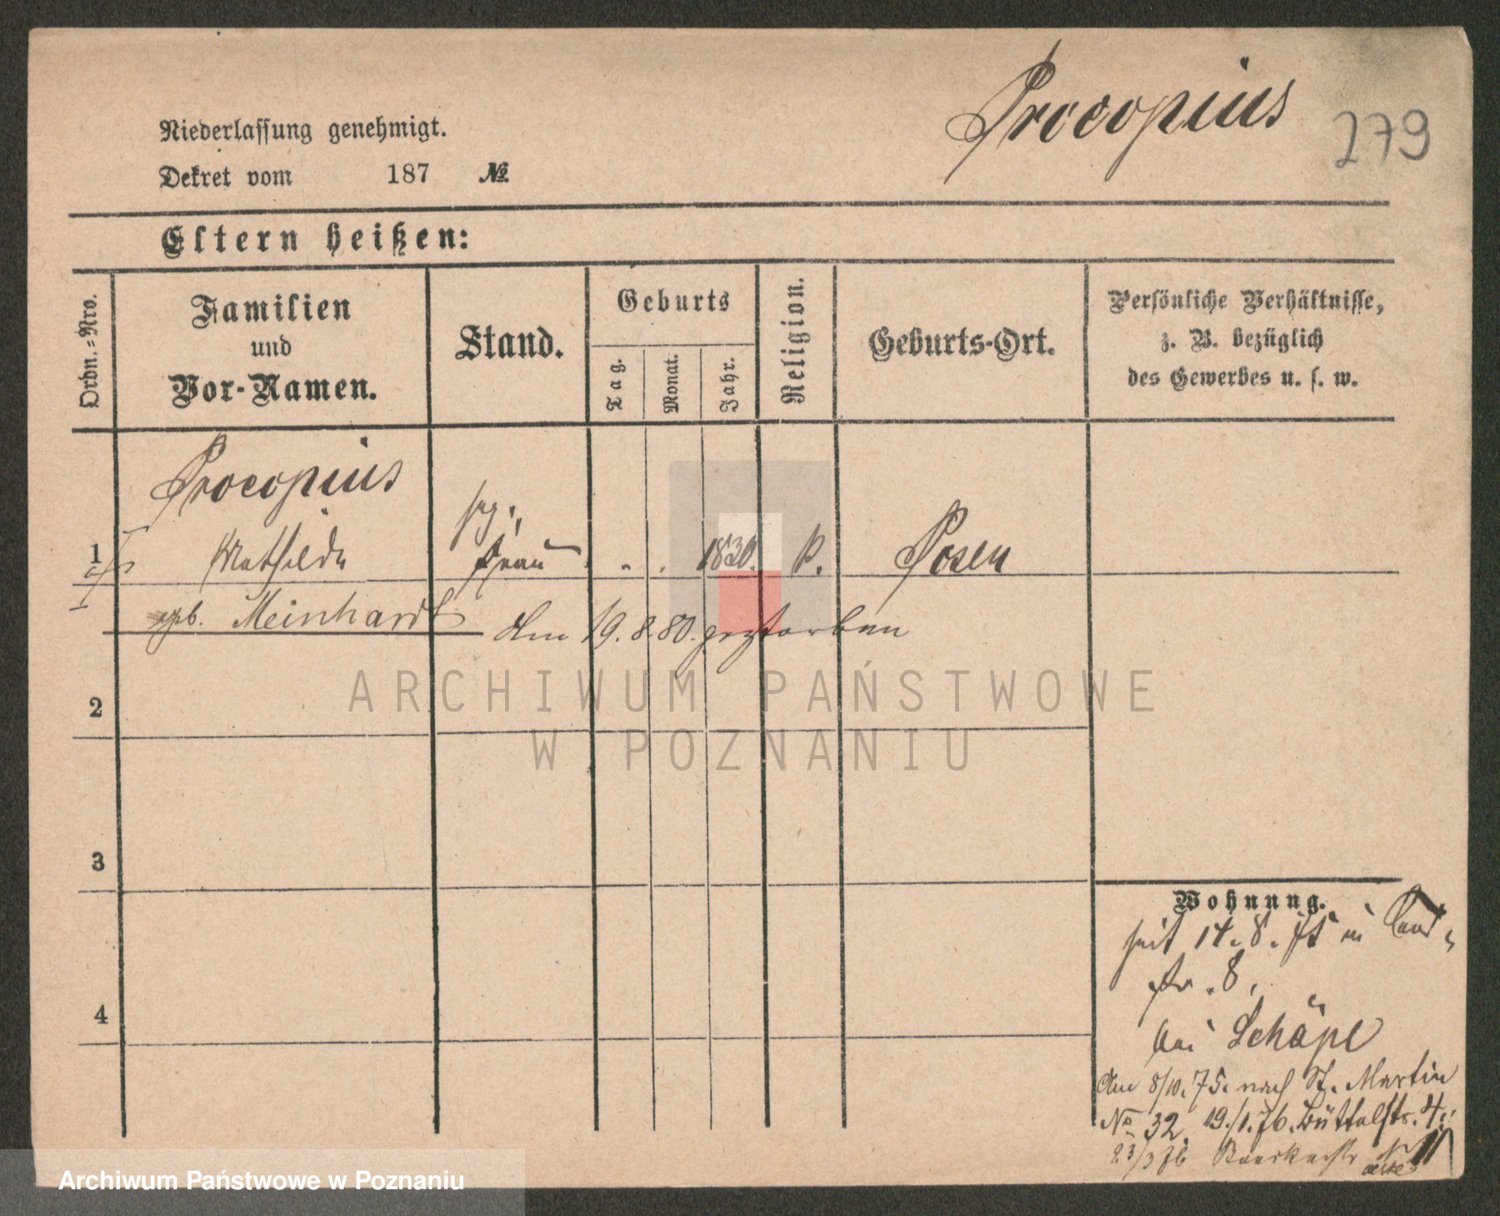 Procopius
279
Niederlassung genehmigt.
Dekret vom 187 №
Eltern heißen:
Ordn.-Nro.
Familien
und
Vor-Namen.
Stand.
Geburts
Tag.
Monat.
Jahr.
Religion.
Geburts-Ort.
Persönliche Verhältnisse,
z. B. bezüglich
des Gewerbes u. s. w.
Procopius
1 Mathilde Frau 1830. K. Posen
geb. Meinhardt
Am 19. 8. 80. gestorben
2
3
4
Wohnung.
seit 14. 8.
str. 8,
bei Schäpe
Am 8/10. 75. nach St. Martin
No 32. 19./1. 76. Büttelstr. 4.
23/3 76
ARCHIWUM PAŃSTWOWE
W POZNANIU
Archiwum Państwowe w Poznaniu